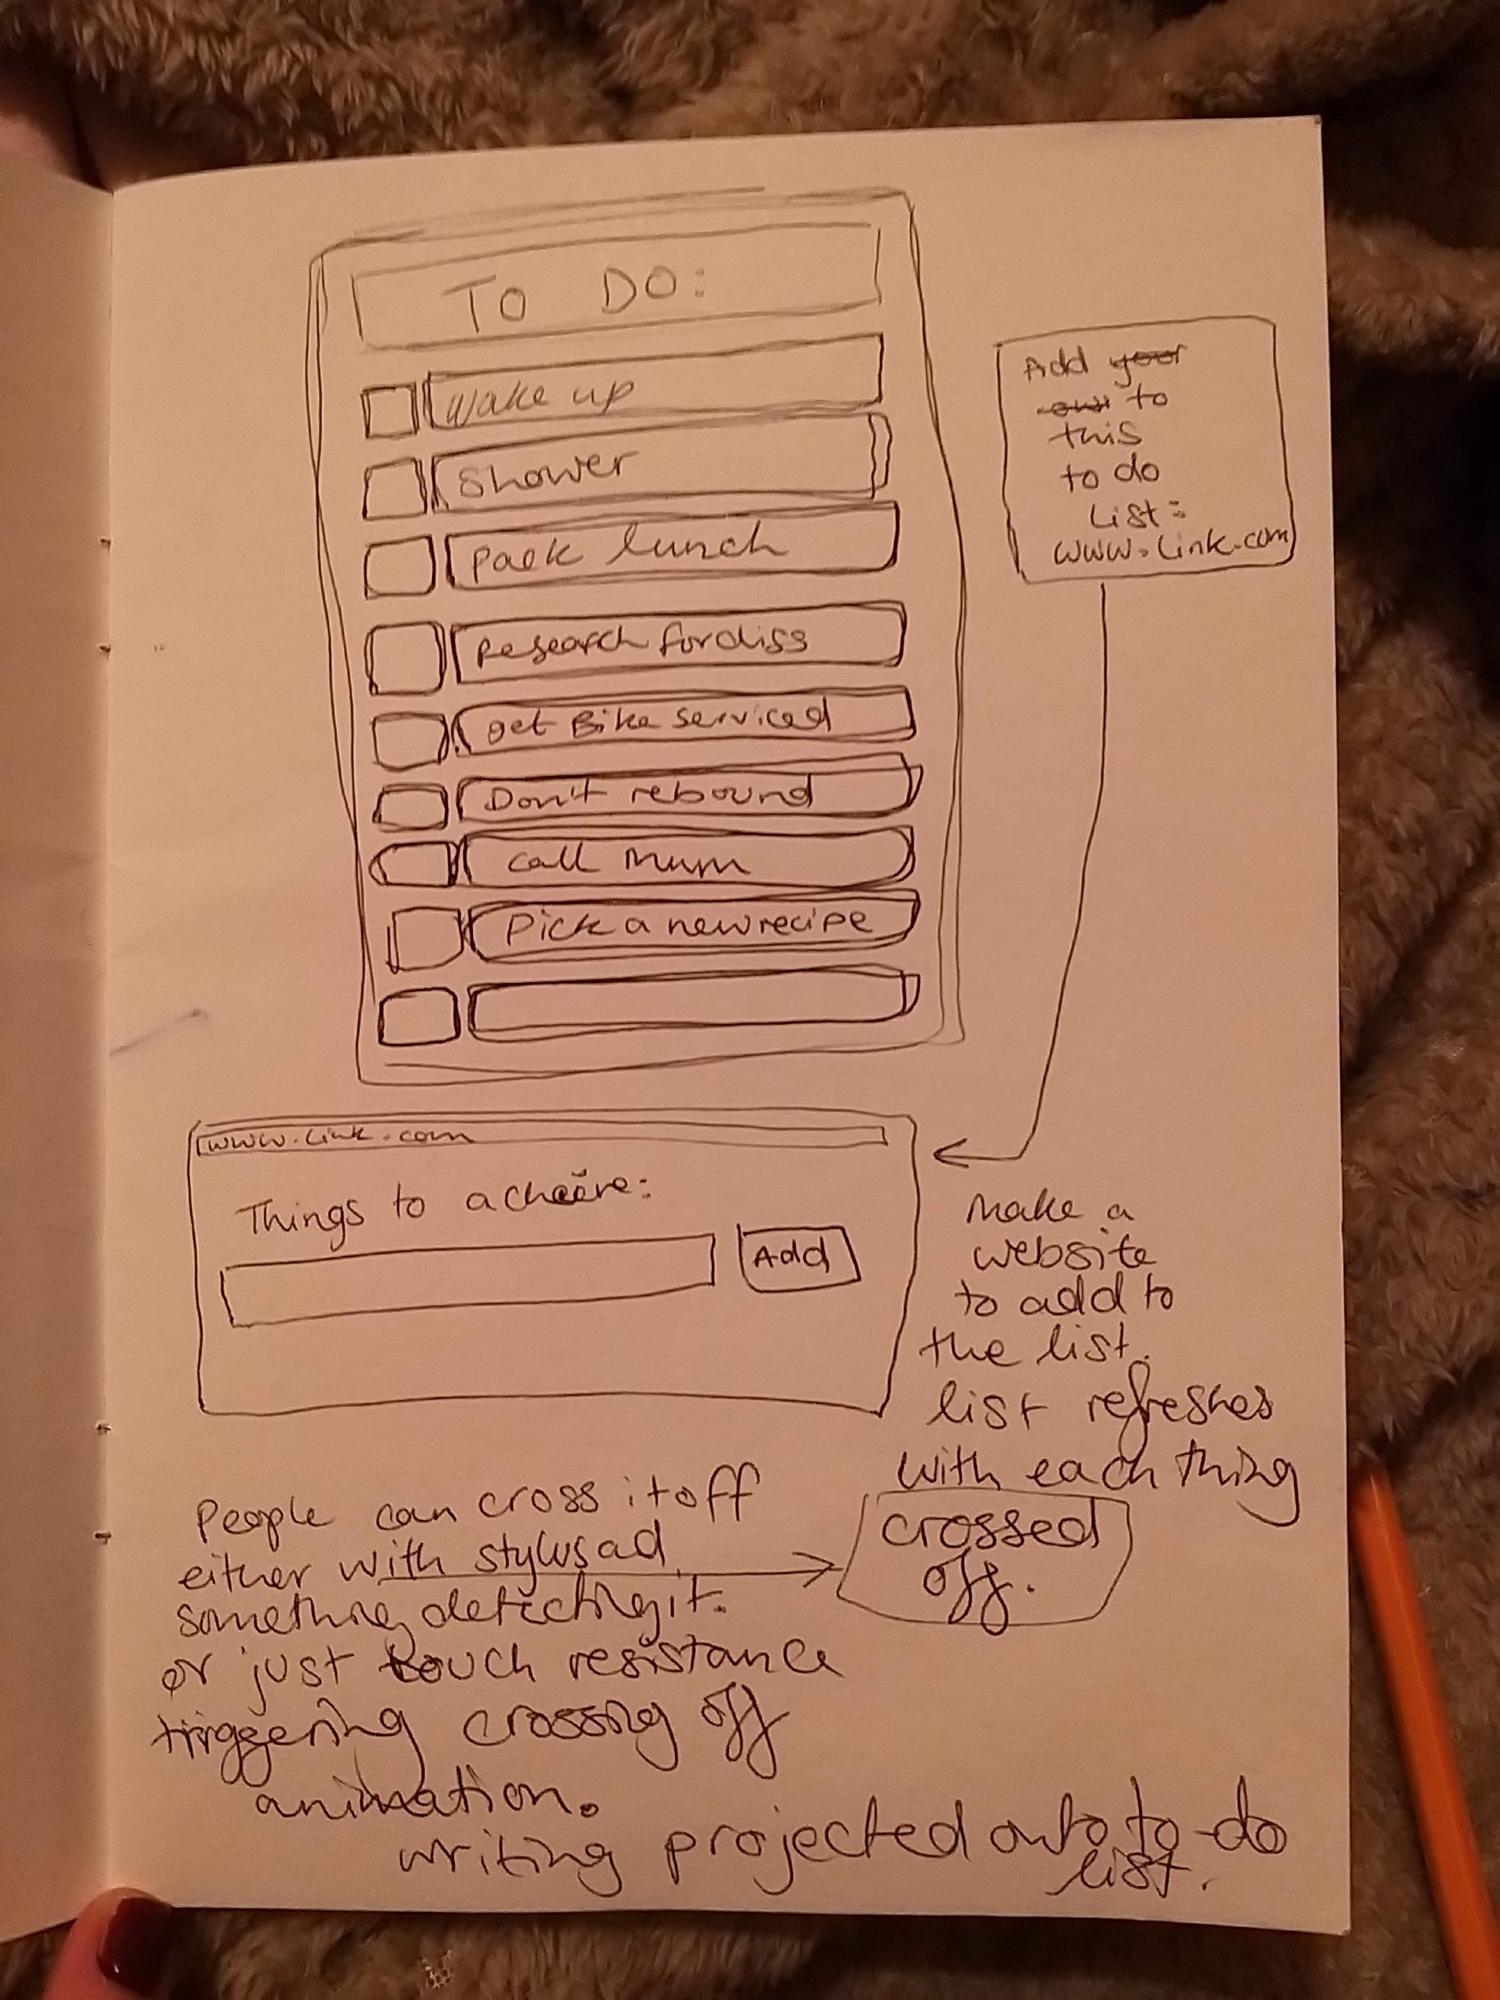 TO DO:
Wake up
Shower
Pack lunch
Research for diss
get Bike serviced
Don't rebound
call mum
Pick a new recipe
Add your
own to
this
to do
List:
www.link.com
www.link.com
Things to acheive:
Add
Make a
website
to add to
the list.
list refreshes
with each thing
crossed
off.
People can cross it off
either with stylus ad
something detecting it.
or just touch resistance
triggering crossing off
animation.
writing projected onto to-do
list.